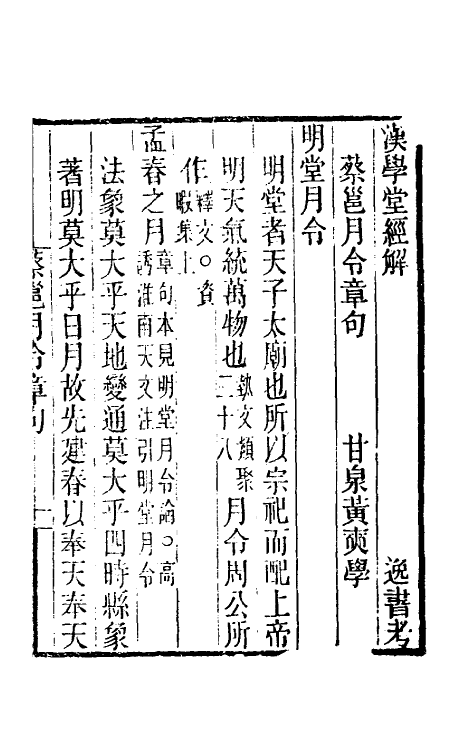 漢學堂經解　逸書考
蔡邕月令章句　甘泉黃奭學
明堂月令
明堂者天子太廟也所以宗祀而配上帝
明天氣統萬物也藝文類聚三十八月令周公所
作釋文○資暇集上
孟春之月章句本見明堂月令論○高誘淮南天文注引明堂月令
法象莫大乎天地變通莫大乎四時縣象
著明莫大乎日月故先建春以奉天奉天
蔡邕月令章句　一